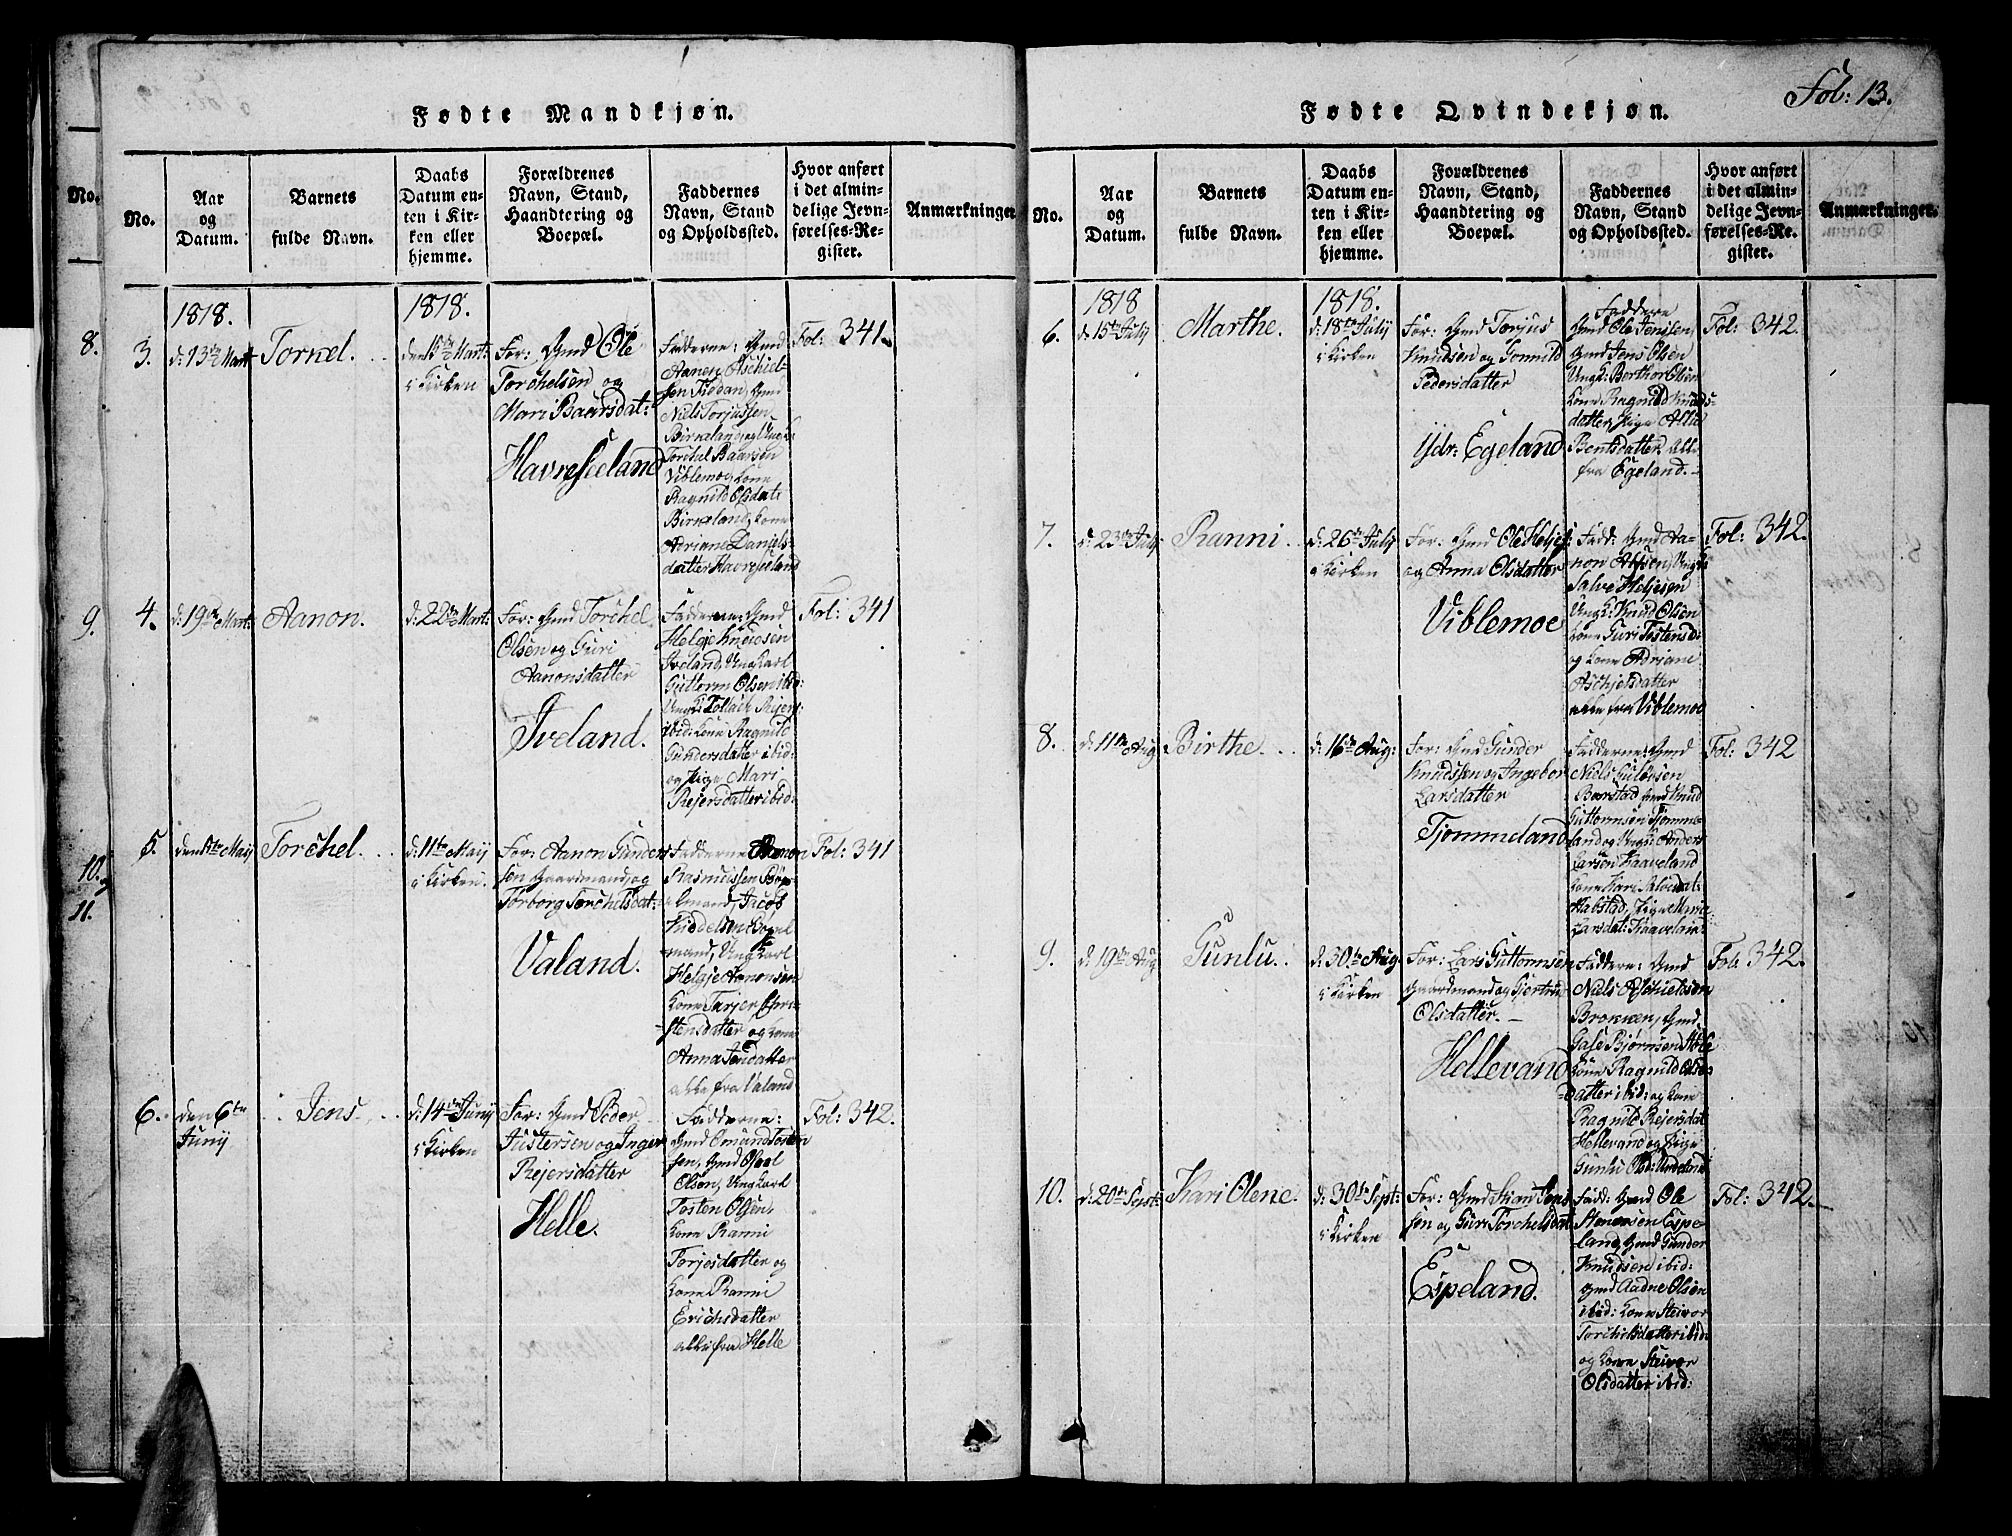 Fol: 13.
Fødte Mandkjøn.
No.
Aar
og
Datum.
Barnets
fulde Navn.
Daabs
Datum en-
ten i Kir-
ken eller
hjemme.
Forældrenes
Navn, Stand,
Haandtering og
Boepæl.
Faddernes
Navn, Stand
og Opholdssted.
Hvor anført
i det almin-
delige Jevn-
førelses-Re-
gister.
Anmærkninger
1818.
1818.
3.
d: 13de Mart
Tornel.
den 15de Mart:
i Kirken
For: Gmd Ole
Torchelsen og
Mari Baarsdat:
Havreseeland
Fadderne: Gmd
Aanen
Niels Torjussen
Birkeland, og Ungk
Torchel Baarsen
Viblemo, Kone
Ragnild Olsdat:
Birkeland, Kone
Adriane Daniels-
datter Havreseeland
Fol: 341.
4.
d: 19de Mart:
Aanon.
d: 22de Mart:
For: Gmd Torchel
Olsen og Guri
Aanonsdatter
Iveland.
Fadderne: Gmd
Helje Knudsen
Iveland, Ungkarl
Guttorm Olsen ibid:
Ungk: Tollack Rejers:
ibid: Kone Ragnild
Gundersdatter ibid:
og Pige Mari
Rejersdatter ibid:
Fol: 341
5.
Torchel.
d: 11te Maij
i Kirken.
For: Aanon Gunder-
sen Gaardmand, og
Torborg Torchelsdat:
Valand.
Fadderne Aanon
Rasmussen Bøg-
mand, Jacob
mand, Ungkarl
Helje Aanonsen
Kone Tarjer Chri-
stensdatter og Kone
Anna Jensdatter
alle fra Valand
Fol: 341
6.
den 6te
Junij
Jens.
d: 14de Junij
i Kirken
For: Gmd Peder
Justersen og Inger
Rejersdatter
Helle.
Fadderne:
Gmd Omund Tosten
sen, Gmd Osval
Olsen, Ungkarl
Tosten Olsen,
Kone Ranni
Torjesdatter og
Kone Ranni
Erichsdatter
alle fra Helle
Fol: 342.
No.
8.
9.
10.
11.
Fødte Qvindekjøn.
No.
Aar
og
Datum.
Barnets
fulde Navn.
Daabs
Datum en-
ten i Kir-
ken eller
hjemme.
Forældrenes
Navn, Stand,
Haandtering og
Boepæl.
Faddernes
Navn, Stand
og Opholdssted.
Hvor anført
i det almin-
delige Jevn-
førelses-Re-
gister.
Anmærkninger.
1818
1818.
6.
d: 15de Julij
Marthe.
d: 18de Julij
i Kirken
For: Gmd Torjus
Knudsen og Gonnild
Pedersdatter
Ydr: Egeland
Faddere
Gmd Ole Jensen,
Gmd Jens Olsen
Ungk: Berthor Olsen
Kone Ragnild Knuds-
datter, Pige
Bentsdatter, alle
fra Egeland.
Fol: 342.
7.
d: 23de Julij
Ranni
d: 26de Julij
i Kirken
For: Gmd Ole Heljes:
og Anna Olsdatter
Viblemoe
Fadd: Gmd Aa-
non
Salve Heljesen
Ungk: Knud Olsen
Kone Guri Tostensd:
og Kone Adriane
Aschjelsdatter
alle fra Viblemoe
Fol: 342.
8.
d: 11te Aug
Birthe.
d: 16de Aug:
For: Gmd Gunder
Knudssen og Ingebor
Larsdatter
Tjommeland
Fadderne: Gmd
Niels
Gmd Knud
Guttormsen Tjomme-
land og Ungk: Anders
Larsen Kaaveland
Kone Kari Salvesdat:
Habstad, Pige Marie
Larsdat: Kaaveland
Fol: 342
9.
d: 19de Aug
Gunlu.
d: 30te Aug
i Kirken
For: Lars Guttormsen
Gaardmand og Gjertrud
Olsdatter.
Hellevand
Faddere: Gmd
Niels Aschielssen
Brokken, Gmd
Bjørnsen
Kone Ragnild Ols-
datter ibid: og Kone
Ragnild Rejersdat
Hellevand og Pige
Gunlu Olsd:
Fol: 342.
10.
d: 20de Sept:
Kari Olene.
d: 30te Sept:
i Kirken
For: Gmd Jens-
sen og Guri Torchelsdat
Espeland.
Fadd: Gmd Ole
Stenersen Espe-
land, Gmd Gunder
Knudsen ibid:
Gmd Aadne Olsen
ibid: Kone Steivor
Torchelsdatter ibid:
og Kone Steivor
Olsdatter ibid:
Fol: 342.